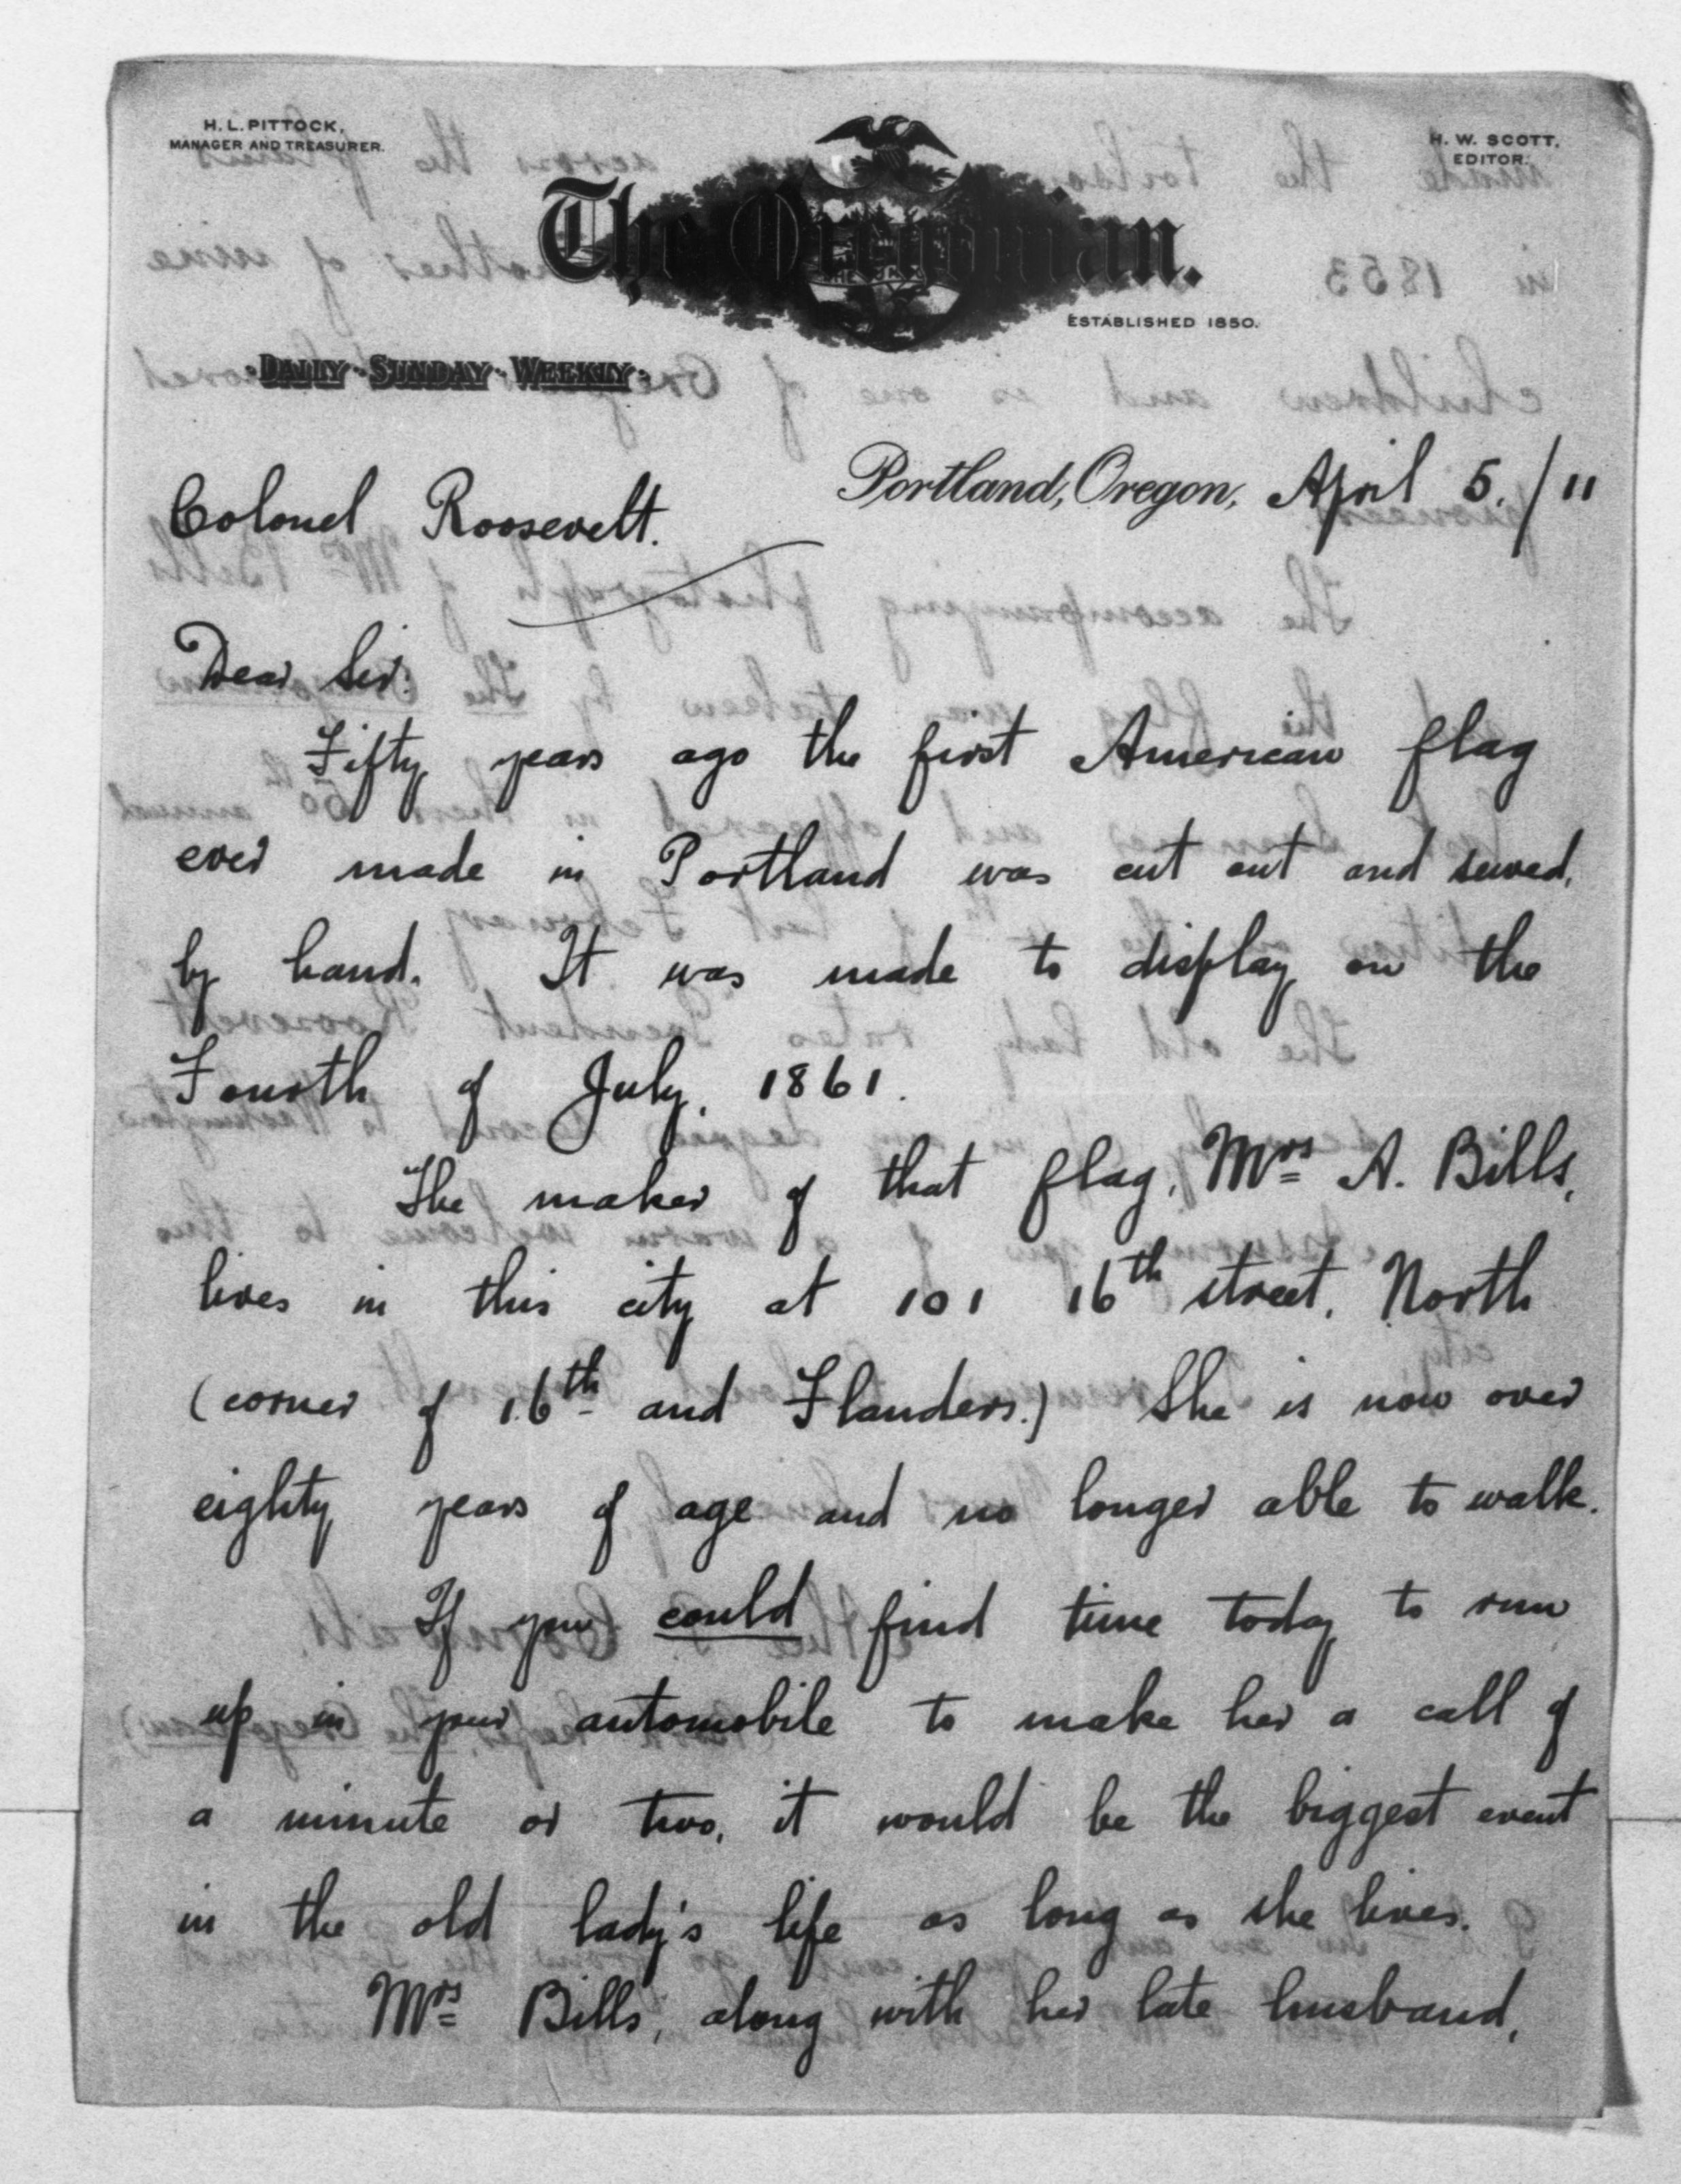 H. L. PITTOCK,
MANAGER AND TREASURER.
H. W. SCOTT,
EDITOR.
The Oregonian.
ESTABLISHED 1850.
DAILY · SUNDAY · WEEKLY
Portland, Oregon, April 5. /11
Colonel Roosevelt.
Dear Sir:
Fifty years ago the first American flag
ever made in Portland was cut out and sewed,
by hand. It was made to display on the
Fourth of July, 1861.
The maker of that flag, Mrs A. Bills,
lives in this city at 101 16th street, North
(corner of 16th and Flanders.) She is now over
eighty years of age and no longer able to walk.
If you could find time today to run
up in your automobile to make her a call of
a minute or two, it would be the biggest event
in the old lady's life as long as she lives.
Mrs Bills, along with her late husband,